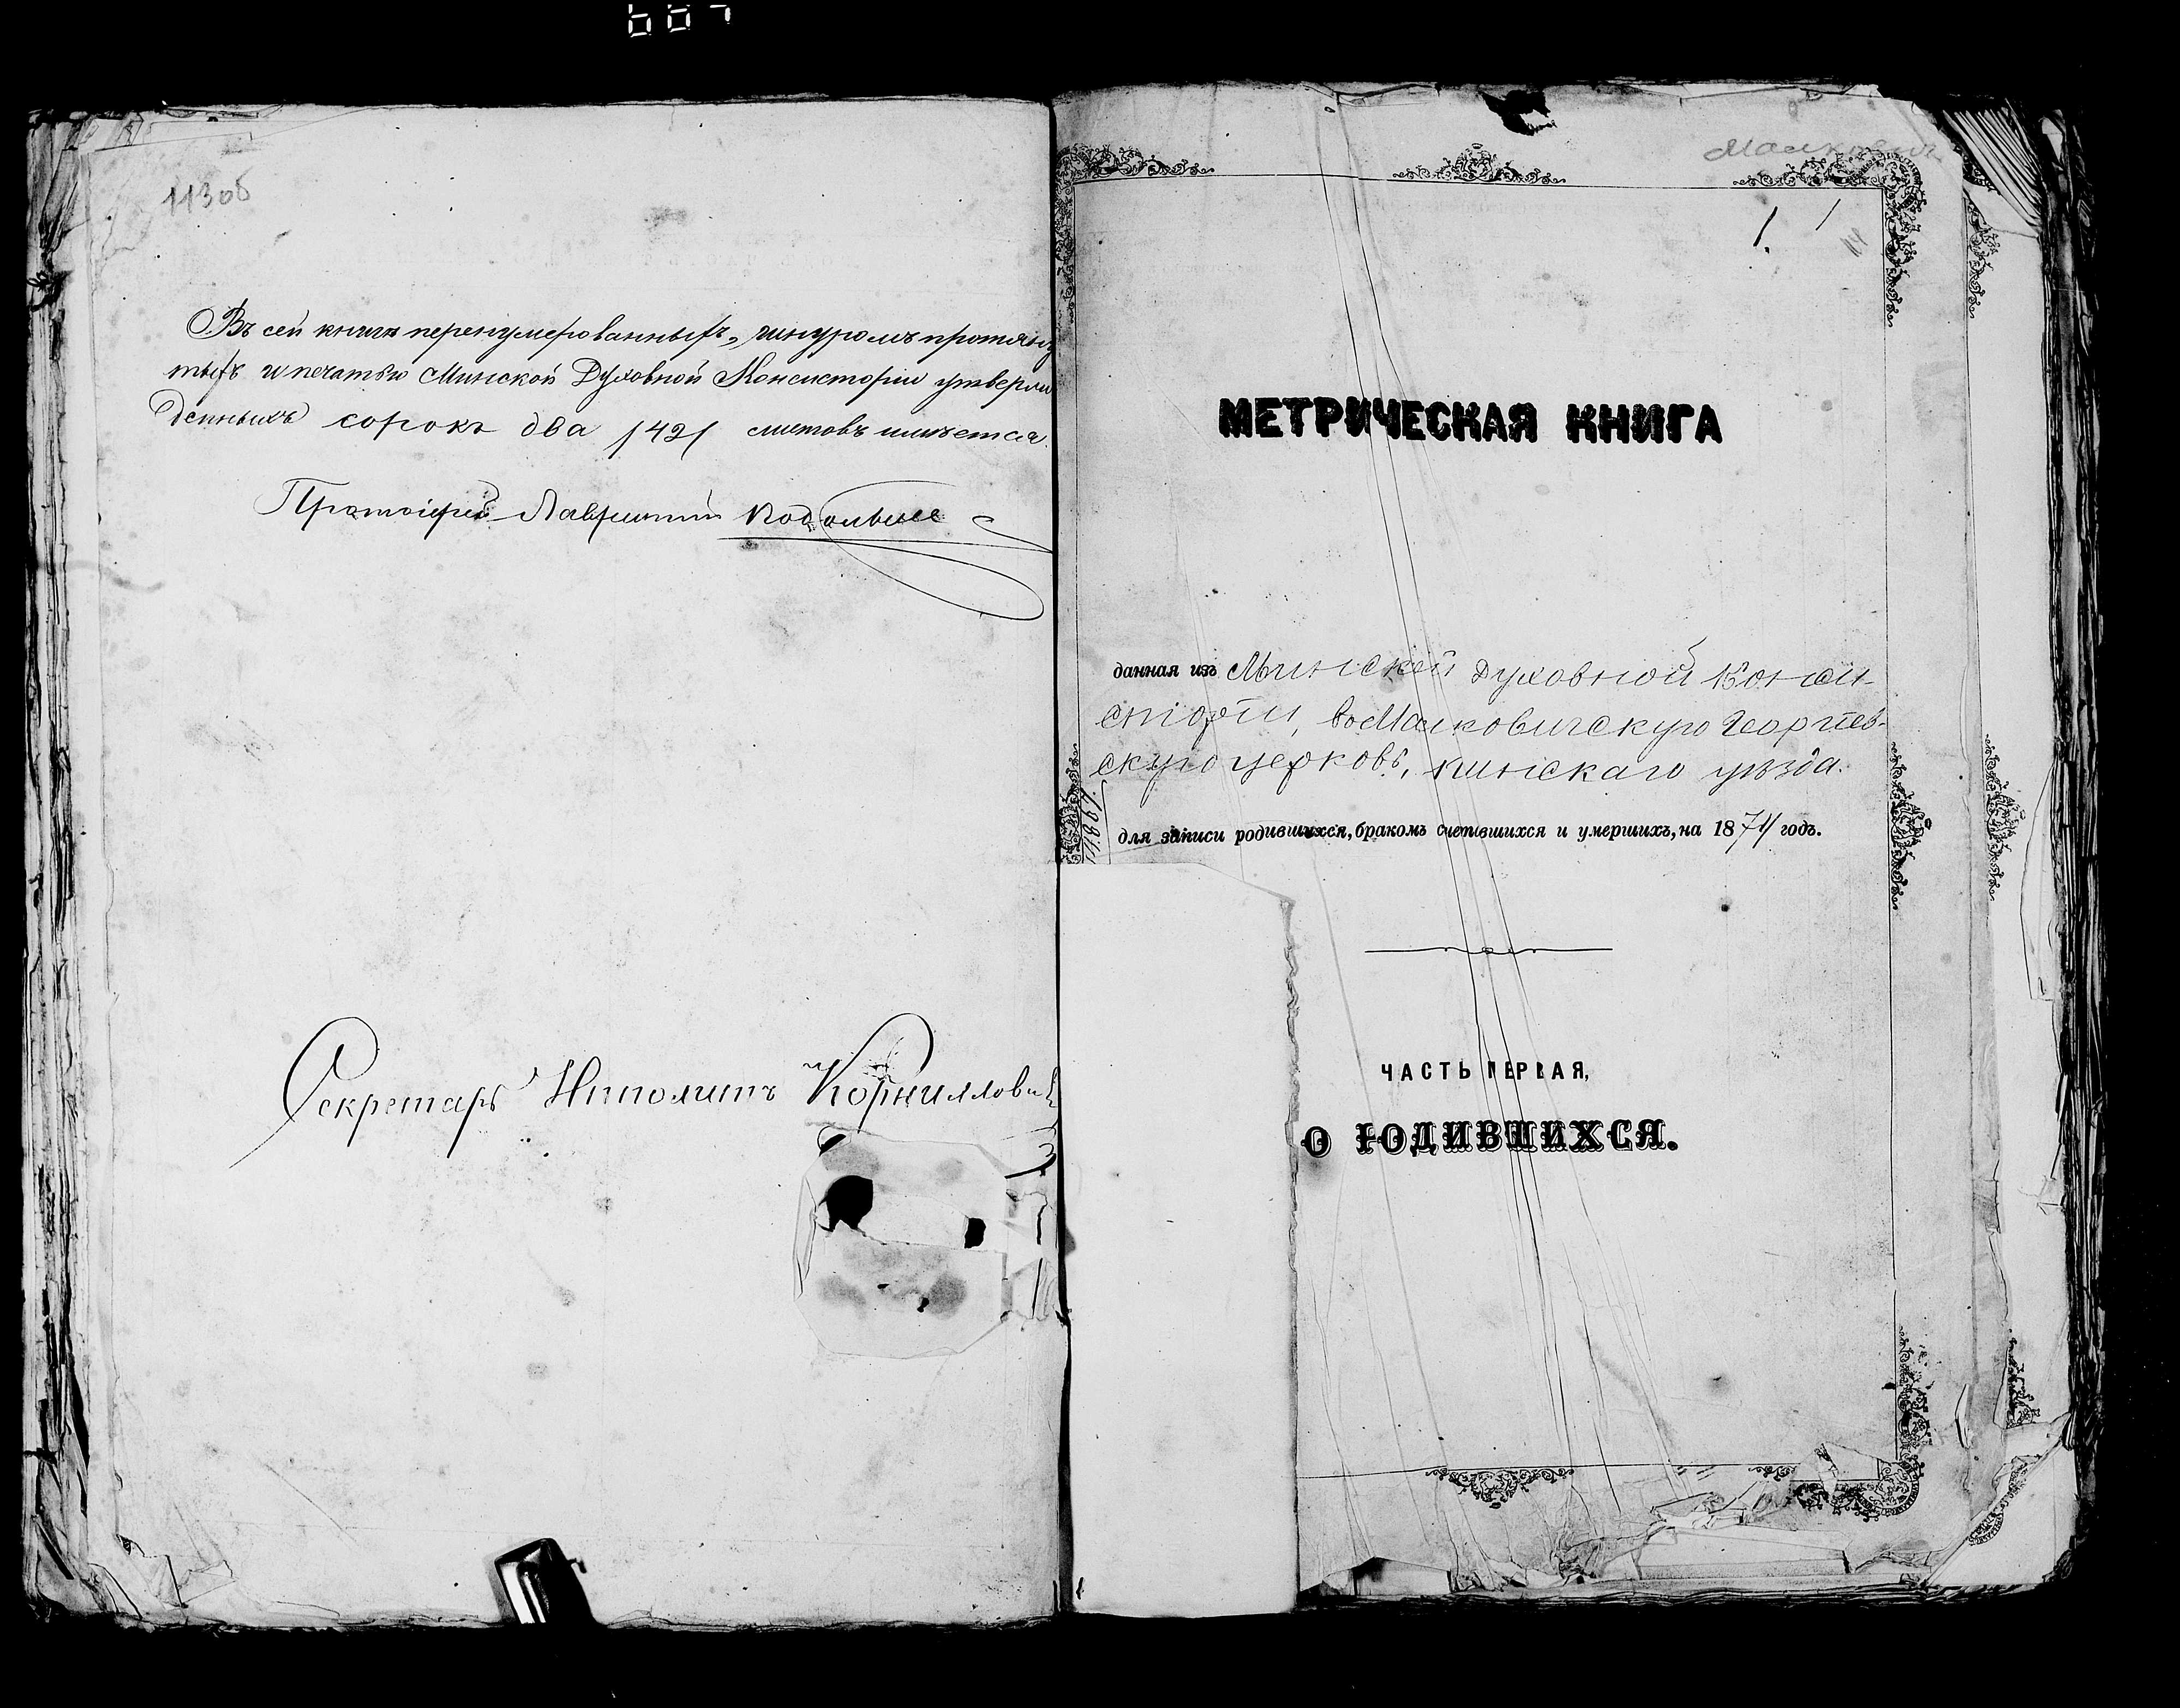 113об
Въ сей книгѣ перенумерованныхъ, шнуромъ протяну
тыхъ и печатью Минской Духовной Консисторіи утверж
денныхъ сорокъ два /42/ листовъ имѣется.
Протоіерей Лаврентій
Секретарь Ипполитъ Корниллови
1.
МЕТРИЧЕСКАЯ КНИГА
данная изъ Минской Духовной Конси-
сторіи, въ Малковичскую Георгіев-
скую церковь, пинскаго уѣзда.
для записи родившихся, бракомъ счетавшихся и умершихъ, на 1871 годъ.
ЧАСТЬ ПЕРВАЯ,
О РОДИВШИХСЯ.